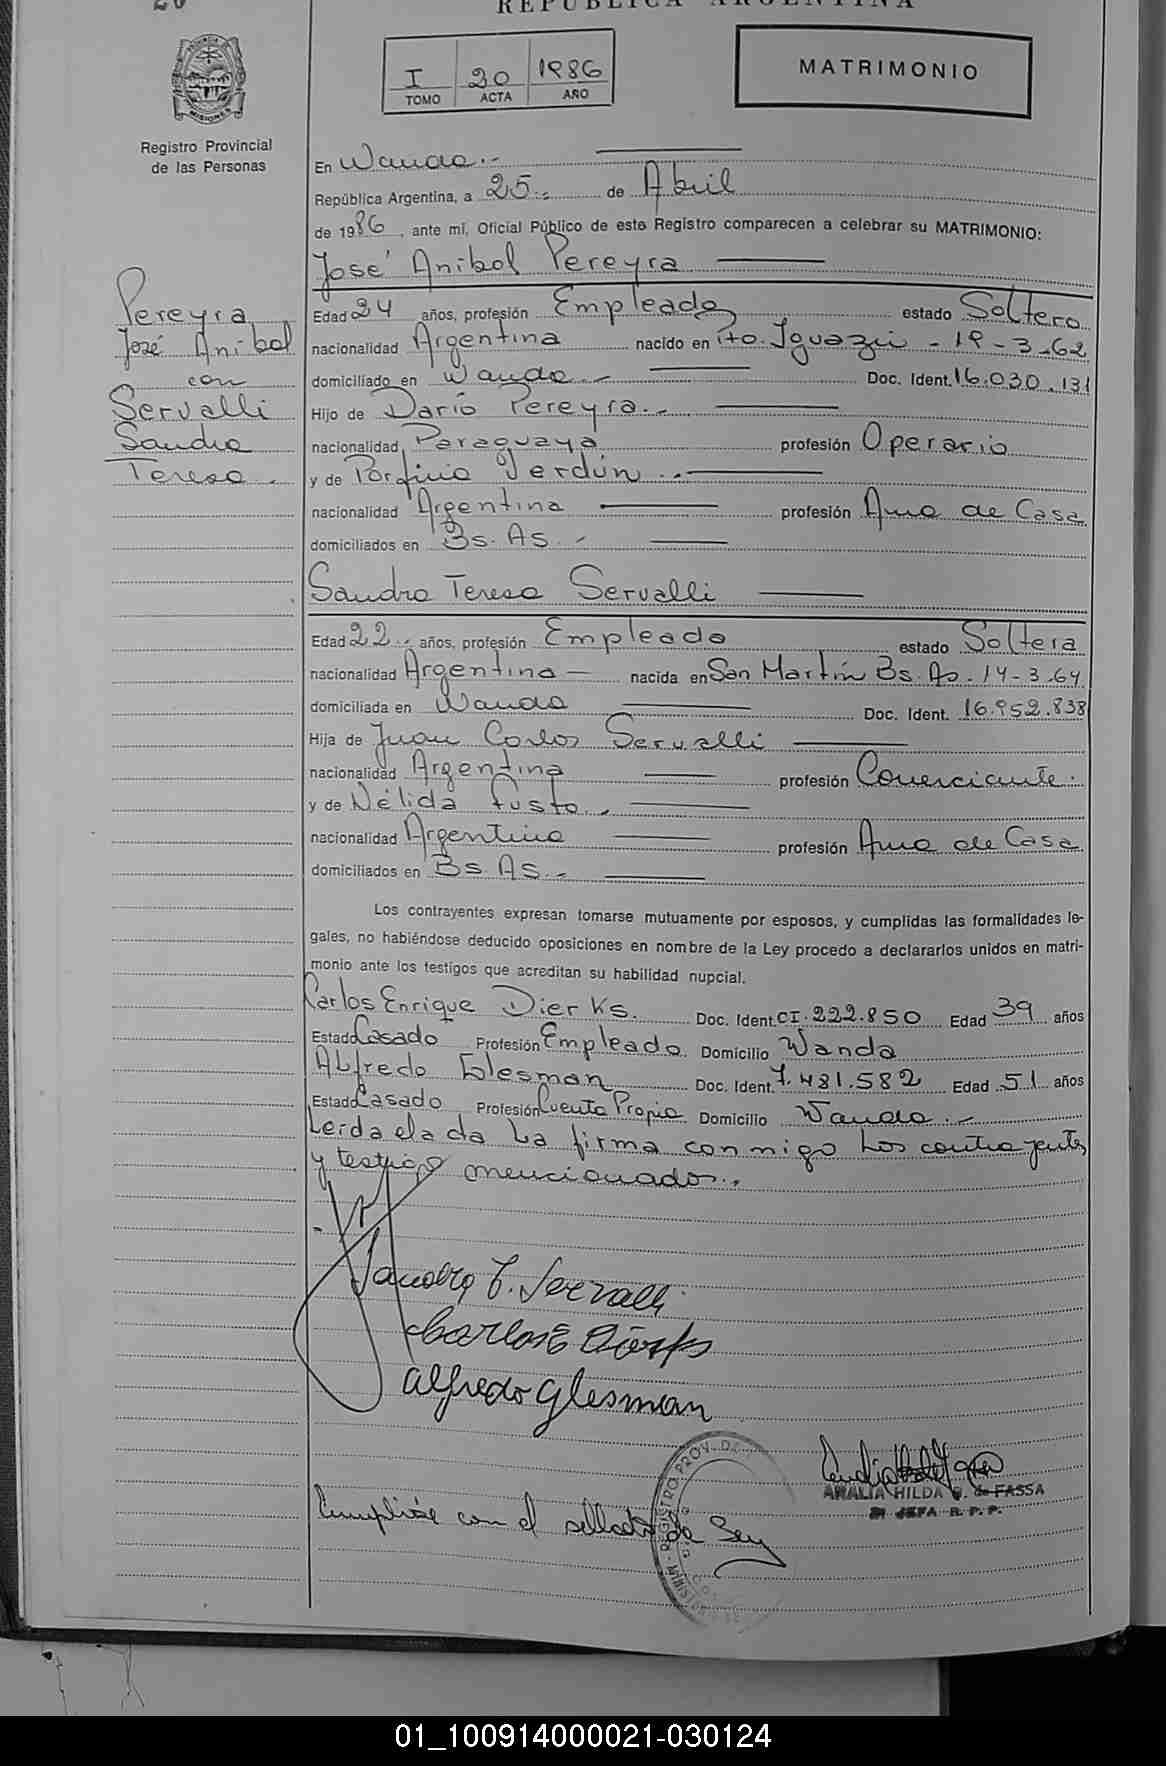 REPUBLICA ARGENTINA
MISIONES
Registro Provincial
de las Personas
I 20 1986
TOMO ACTA AÑO
MATRIMONIO
Pereyra
José Anibal
con
Servalli
Sandra
Teresa.
En Wanda.-
República Argentina, a 25.- de Abril
de 1986, ante mí, Oficial Público de este Registro comparecen a celebrar su MATRIMONIO:
José Anibal Pereyra
Edad 24 años, profesión Empleado estado Soltero
nacionalidad Argentina nacido en Pto. Iguazú - 19-3-62
domiciliado en Wanda.- Doc. Ident. 16.030.131
Hijo de Darío Pereyra.-
nacionalidad Paraguaya profesión Operario
y de Porfiria Verdún.-
nacionalidad Argentina profesión Ama de Casa
domiciliados en Bs. As.-
Sandra Teresa Servalli
Edad 22.- años, profesión Empleada estado Soltera
nacionalidad Argentina - nacida en San Martín Bs. As. 14-3-64
domiciliada en Wanda Doc. Ident. 16.952.838
Hija de Juan Carlos Servalli
nacionalidad Argentina profesión Comerciante.
y de Nélida Fusto.-
nacionalidad Argentina profesión Ama de Casa
domiciliados en Bs. As.-
Los contrayentes expresan tomarse mutuamente por esposos, y cumplidas las formalidades le-
gales, no habiéndose deducido oposiciones en nombre de la Ley procedo a declararlos unidos en matri-
monio ante los testigos que acreditan su habilidad nupcial.
Carlos Enrique Dierks. Doc. Ident. CI. 222.850 Edad 39 años
Estado Casado Profesión Empleado Domicilio Wanda
Alfredo Glesman Doc. Ident. 7.481.582 Edad 51 años
Estado Casado Profesión Cuenta Propia Domicilio Wanda.-
Leida el acta la firma conmigo los contrayentes
y testigos mencionados.-
Sandra T. Servalli
Carlos E Dierks
Alfredo Glesman
AMALIA HILDA de FASSA
JEFA R. P. P.
Cumplióse con el sellado de Ley
REGISTRO PROV. DE
MINISTERIO DE
01_100914000021-030124